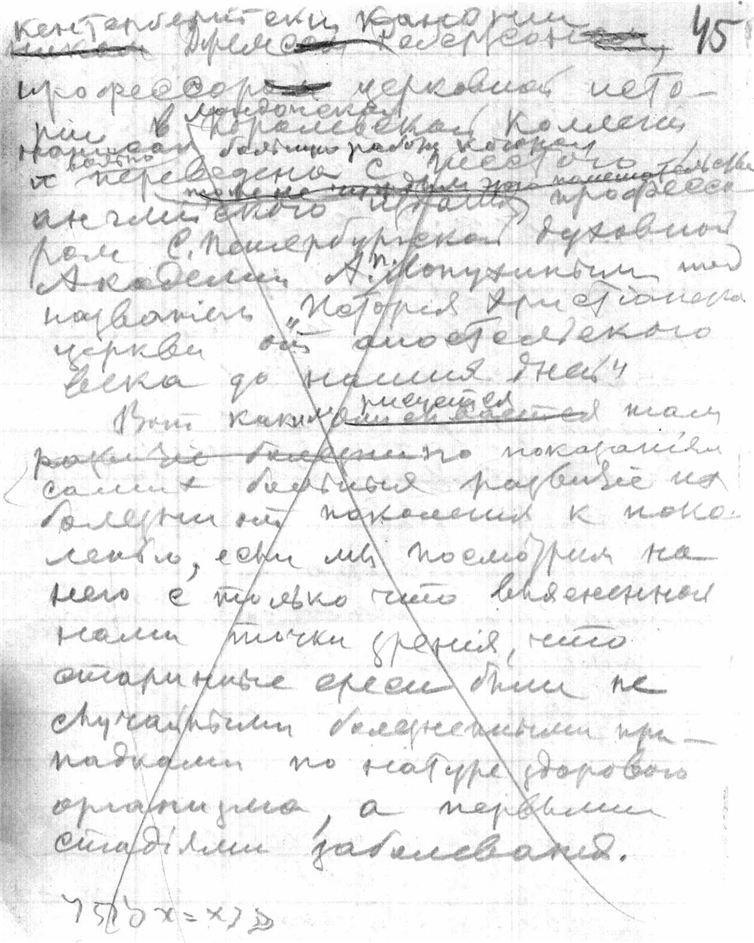 45
кентерберійскій каноник
Джемса Робертсона,
профессоромъ церковной исто-
ріи в лондонской королевской коллегіи
большую работу, которая
и переведена с шестого
англійского профессо
ром С. Петербургской духовной
Академіи А. П. Лопухиным под
названіем „Исторія христіанской
церкви от апостольского
века до наших дней“
Вот каким рисуется там
развитіе болезни по показаніям
самих больных развитіе их
болезни от поколения к поко-
лению, если мы посмотрим на
него с только что выясненной
нами точки зрения, что
старинные ереси были не
случайными болезненными при-
падками по натуре здорового
организма, а первыми
стадіями заболевания.